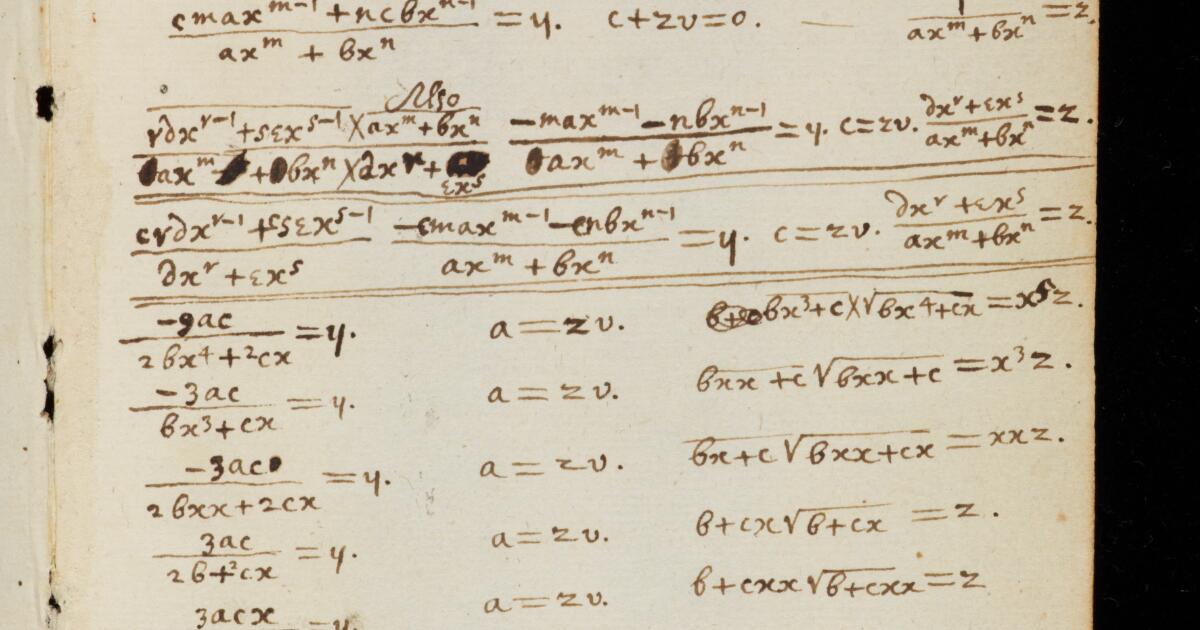 cmaxᵐ⁻¹ + ncbxⁿ⁻¹ / axᵐ + bxⁿ = y. c + zv = 0. 1 / axᵐ + bxⁿ = z.
Also
r∂xʳ⁻¹ + sεxˢ⁻¹ X axᵐ + bxⁿ / axᵐ + bxⁿ X ∂xʳ + εxˢ −maxᵐ⁻¹ − nbxⁿ⁻¹ / axᵐ + bxⁿ = y. c = zv. ∂xʳ + εxˢ / axᵐ + bxⁿ = z.
cr∂xʳ⁻¹ + csεxˢ⁻¹ / ∂xʳ + εxˢ −cmaxᵐ⁻¹ − cnbxⁿ⁻¹ / axᵐ + bxⁿ = y. c = zv. ∂xʳ + εxˢ / axᵐ + bxⁿ = z.
−9ac / 2bx⁴ + 2cx = y. a = zv. bx³ + c X √bx⁴ + cx = x⁵z.
−3ac / bx³ + cx = y. a = zv. bxx + c √bxx + c = x³z.
−3ac / 2bxx + 2cx = y. a = zv. bx + c √bxx + cx = xxz.
3ac / 2b + 2cx = y. a = zv. b + cx √b + cx = z.
3acx = y. a = zv. b + cxx √b + cxx = z